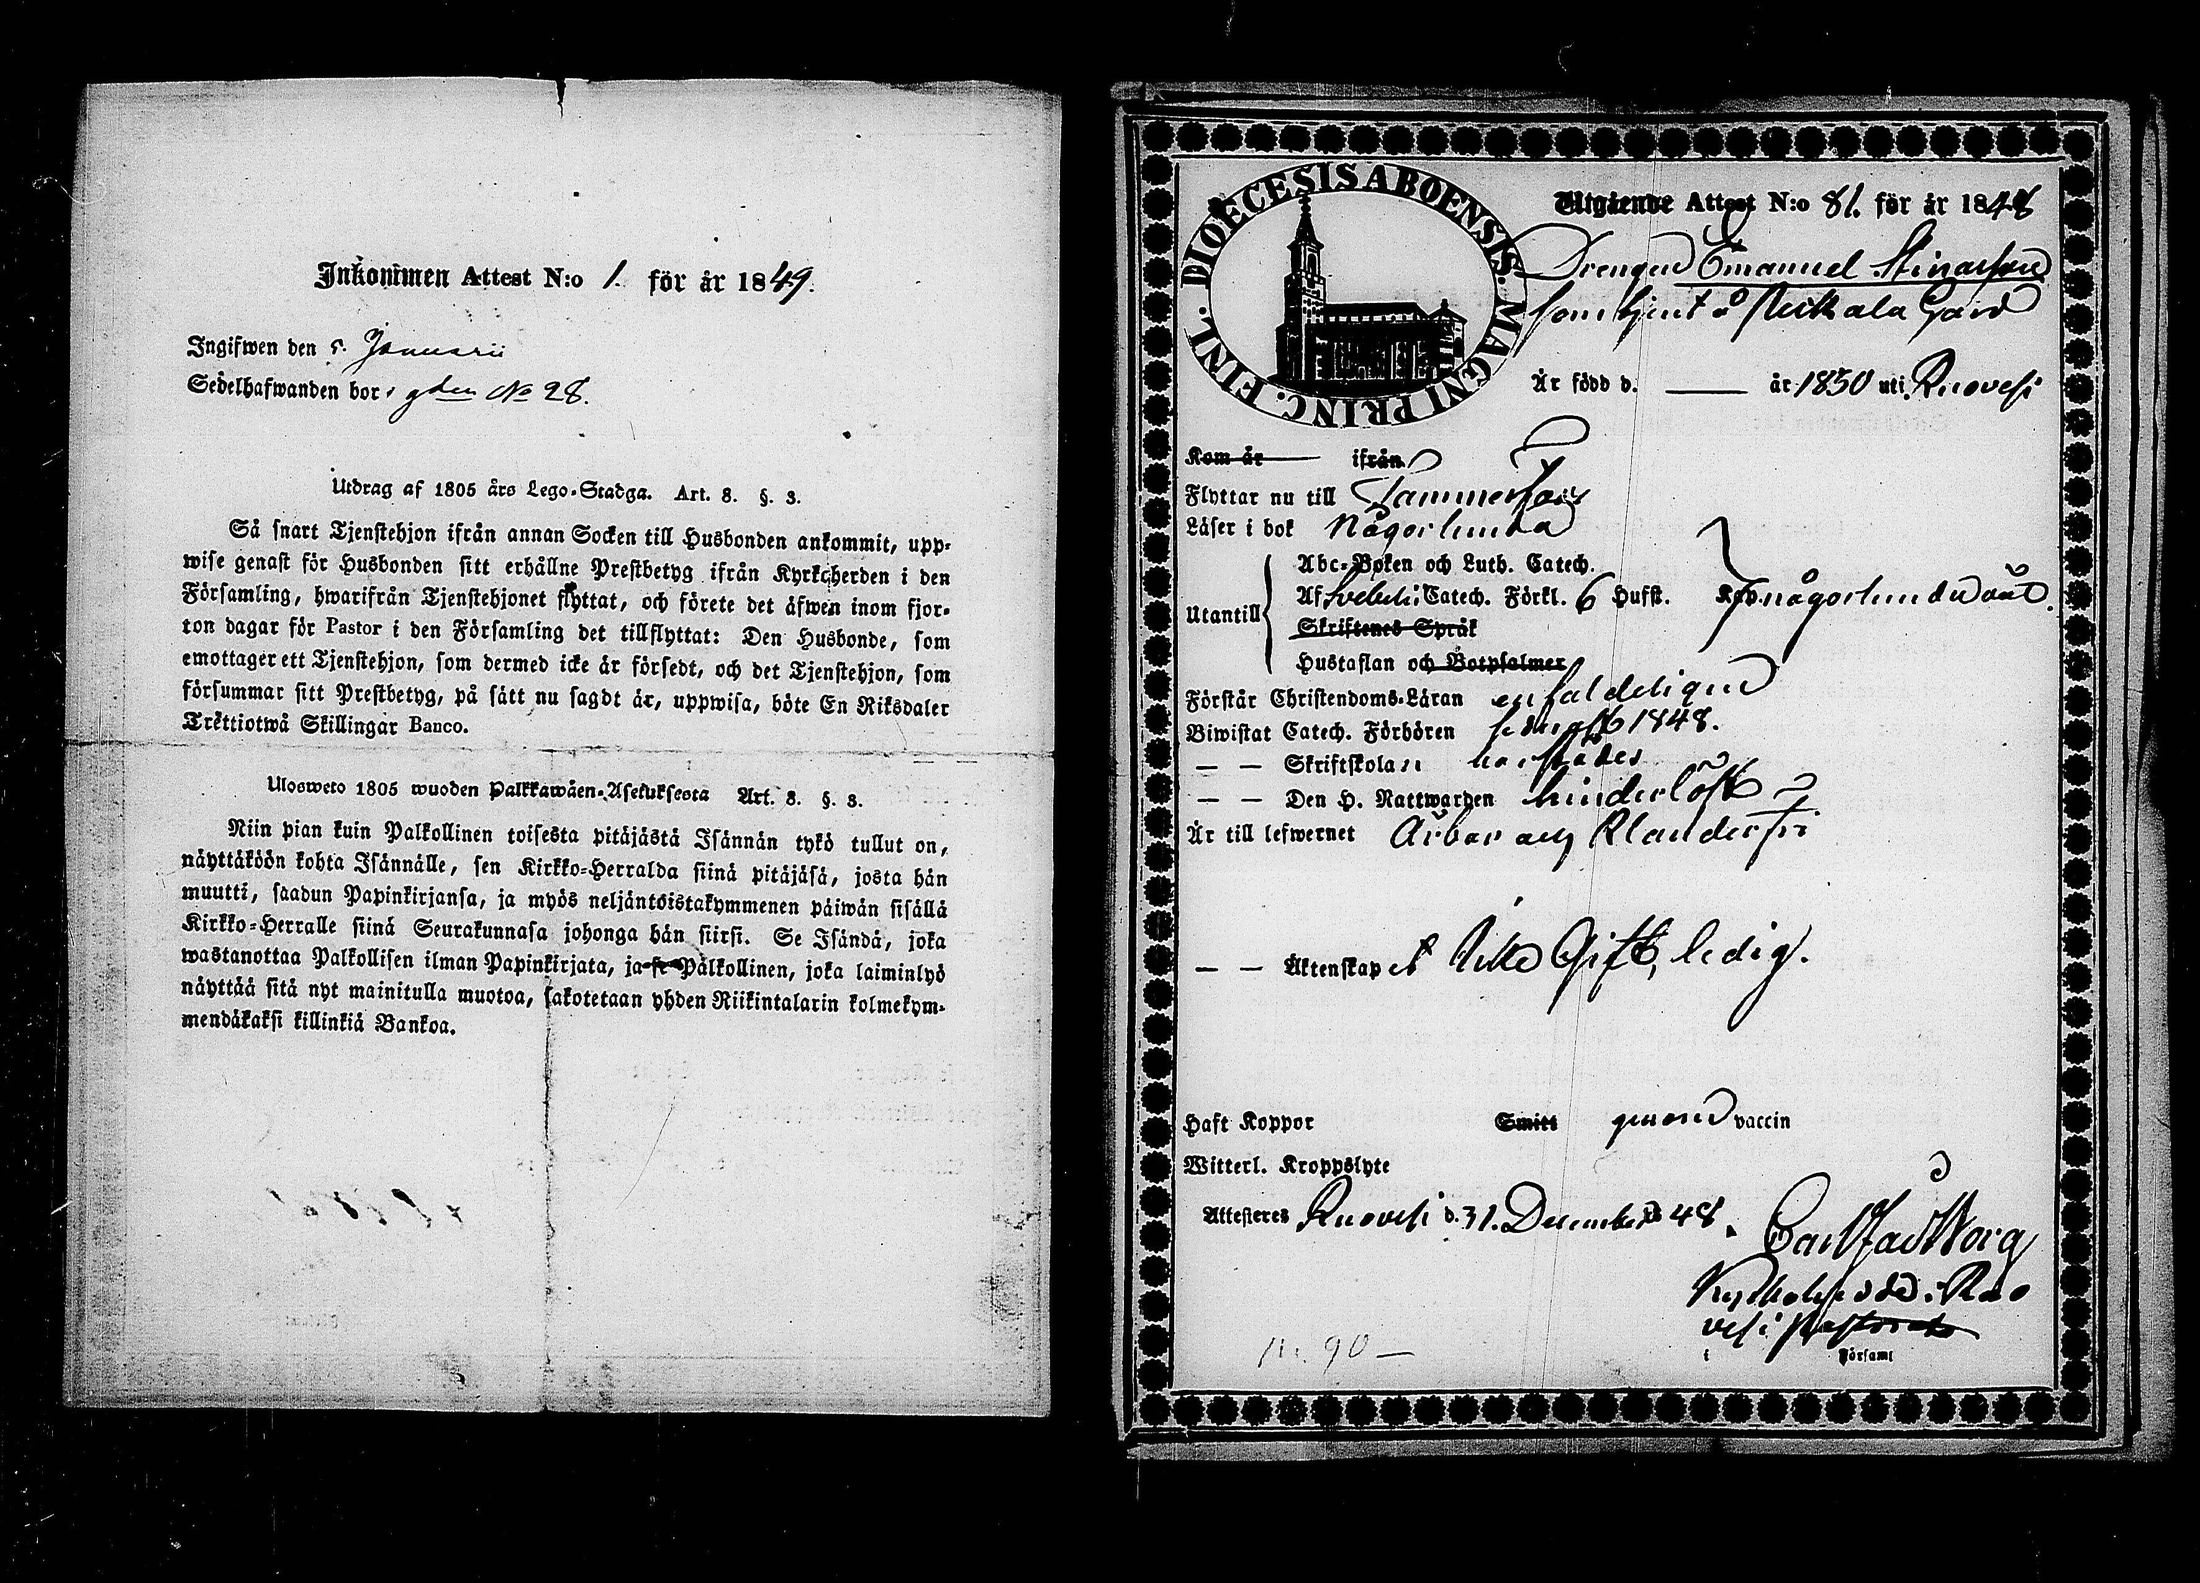 Inkommen Attest N:o 1. för år 1849.
Ingifwen den 5. Januarii
Sedelhafwanden bor i gden No 28.
Utdrag af 1805 års Lego-Stadga. Art. 8. §. 3.
Så snart Tjenstehjon ifrån annan Socken till Husbonden ankommit, upp-
wise genast för Husbonden sitt erhållne Prestbetyg ifrån Kyrkoherden i den
Församling, hwarifrån Tjenstehjonet flyttat, och förete det äfwen inom fjor-
ton dagar för Pastor i den Församling det tillflyttat: Den Husbonde, som
emottager ett Tjenstehjon, som dermed icke är försedt, och det Tjenstehjon, som
försummar sitt Prestbetyg, på sätt nu sagdt är, uppwisa, böte En Riksdaler
Trettiotwå Skillingar Banco.
Ulosweto 1805 wuoden Palkkawäen-Asetuksesta Art. 8. §. 3.
Niin pian kuin Palkollinen toisesta pitäjästä Isännän tykö tullut on,
näyttäköön kohta Isännälle, sen Kirkko-Herralda siinä pitäjäsä, josta hän
muutti, saadun Papinkirjansa, ja myös neljäntöistakymmenen päiwän sisällä
Kirkko-Herralle siinä Seurakunnasa johonga hän siirsi. Se Isändä, joka
wastanottaa Palkollisen ilman Papinkirjata, ja se Palkollinen, joka laiminlyö
näyttää sitä nyt mainitulla muotoa, sakotetaan yhden Riikintalarin kolmekym-
mendäkaksi killinkiä Bankoa.
DIOECESIS ABOENSIS. MAGNI PRINC. FINL.
Utgående Attest N:o 81. för år 1848
Drengen Emanuel Stinasson
som tjent å Pukala Gård
Är född d. — år 1830 uti Ruovesi
Kom år ifrån
Flyttar nu till Tammerfors
Läser i bok någorlunda
Utantill
Abc-Boken och Luth. Catech.
Af Svebelii Catech. Förkl. 6 Hufst. någorlunda
Skriftenes Språk
Hustaflan och Botpsalmer
Förstår Christendoms-Läran enfaldeligen
Biwistat Catech. Förhören sednast 1848.
— — Skriftskolan härstädes
— — Den H. Nattwarden hinderlöst
Är till lefwernet ärbar och klanderfri
— — Äktenskap ej Icke Gift, ledig.
Haft Koppor Smitt genom vaccin
Witterl. Kroppslyte
Attesteres Ruovesi d. 31. December 48.
Kyrkoherde i Ruo
vesi Pastorat
i Församl
N: 90 —